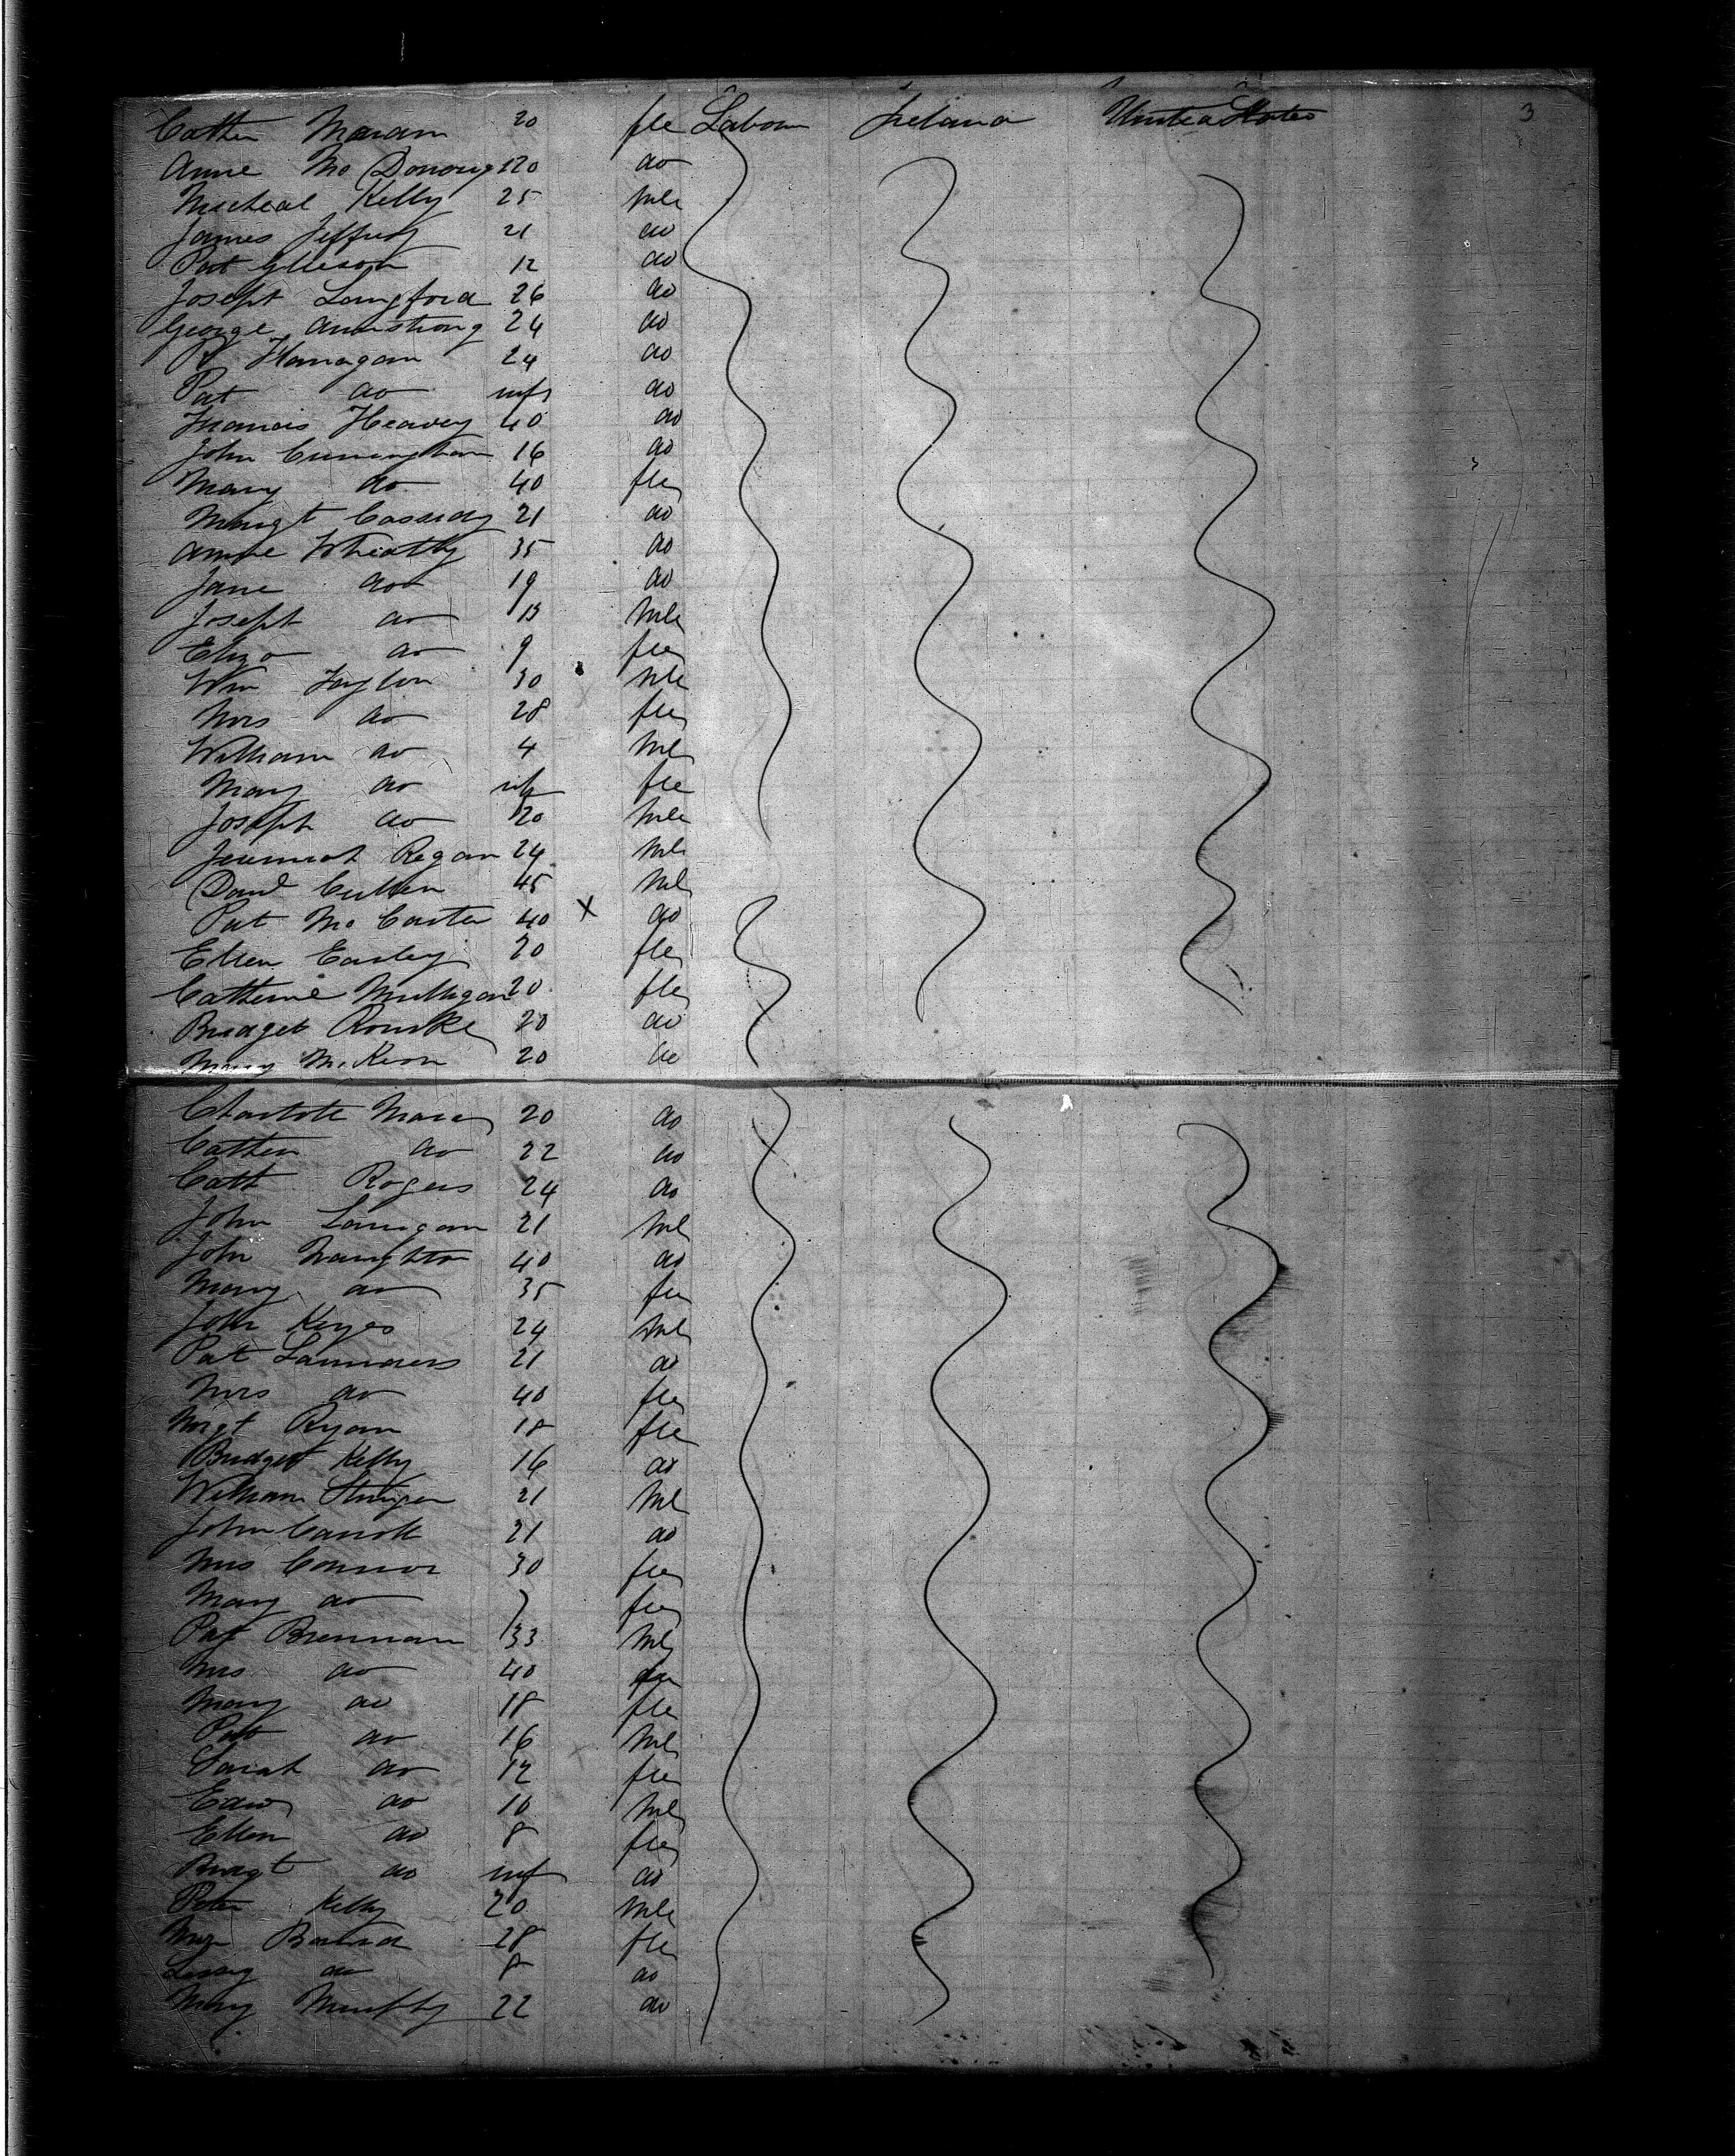 3
Cathn Maram 20 fle Labour Ireland United States
Anne Mc Donoug 20 do
Micheal Kelly 25 mle
James Jeffrey 21 do
Pat Gleeson 12 do
Joseph Langford 26 do
George Armstrong 24 do
P Flanagan 24 do
Pat do inft do
Francis Heavey 40 do
John Cunningham 16 do
Mary do 40 fle
Margt Cassidy 21 do
Anne Wheatly 35 do
Jane do 19 do
Joseph do 13 mle
Eliza do 9 fle
Wm Taylor 30 mle
Mrs do 28 fle
William do 4 ml
Mary do inf fle
Joseph do 20 mle
Jeremiah Regan 24 ml
Danl Cullen 45 ml
Pat Mc Carter 40 X do
Ellen Earley 20 fle
Catherine Mulligan 20 fle
Bridget Rourke 20 do
Mary McKeon 20 do
Charlotte 20 do
Cathn do 22 do
Cath Rogers 24 do
John Lanigan 21 ml
John Naughton 40 do
Mary do 35 fle
John Keyes 24 ml
Pat Saunders 21 do
Mrs do 40 fle
Mgt Ryan 18 fle
Bridget Kelly 16 do
William 21 ml
John Carroll 21 do
Mrs Connor 30 fle
Mary do 7 fle
Pat Brennan 33 ml
Mrs do 40 fle
Mary do 18 fle
Pat do 16 ml
Sarah do 12 fle
Edw do 10 ml
Ellen do 8 fle
Bridgt do inf do
Peter Kelly 20 mle
28 fle
do 8 do
Mary Murphy 22 do